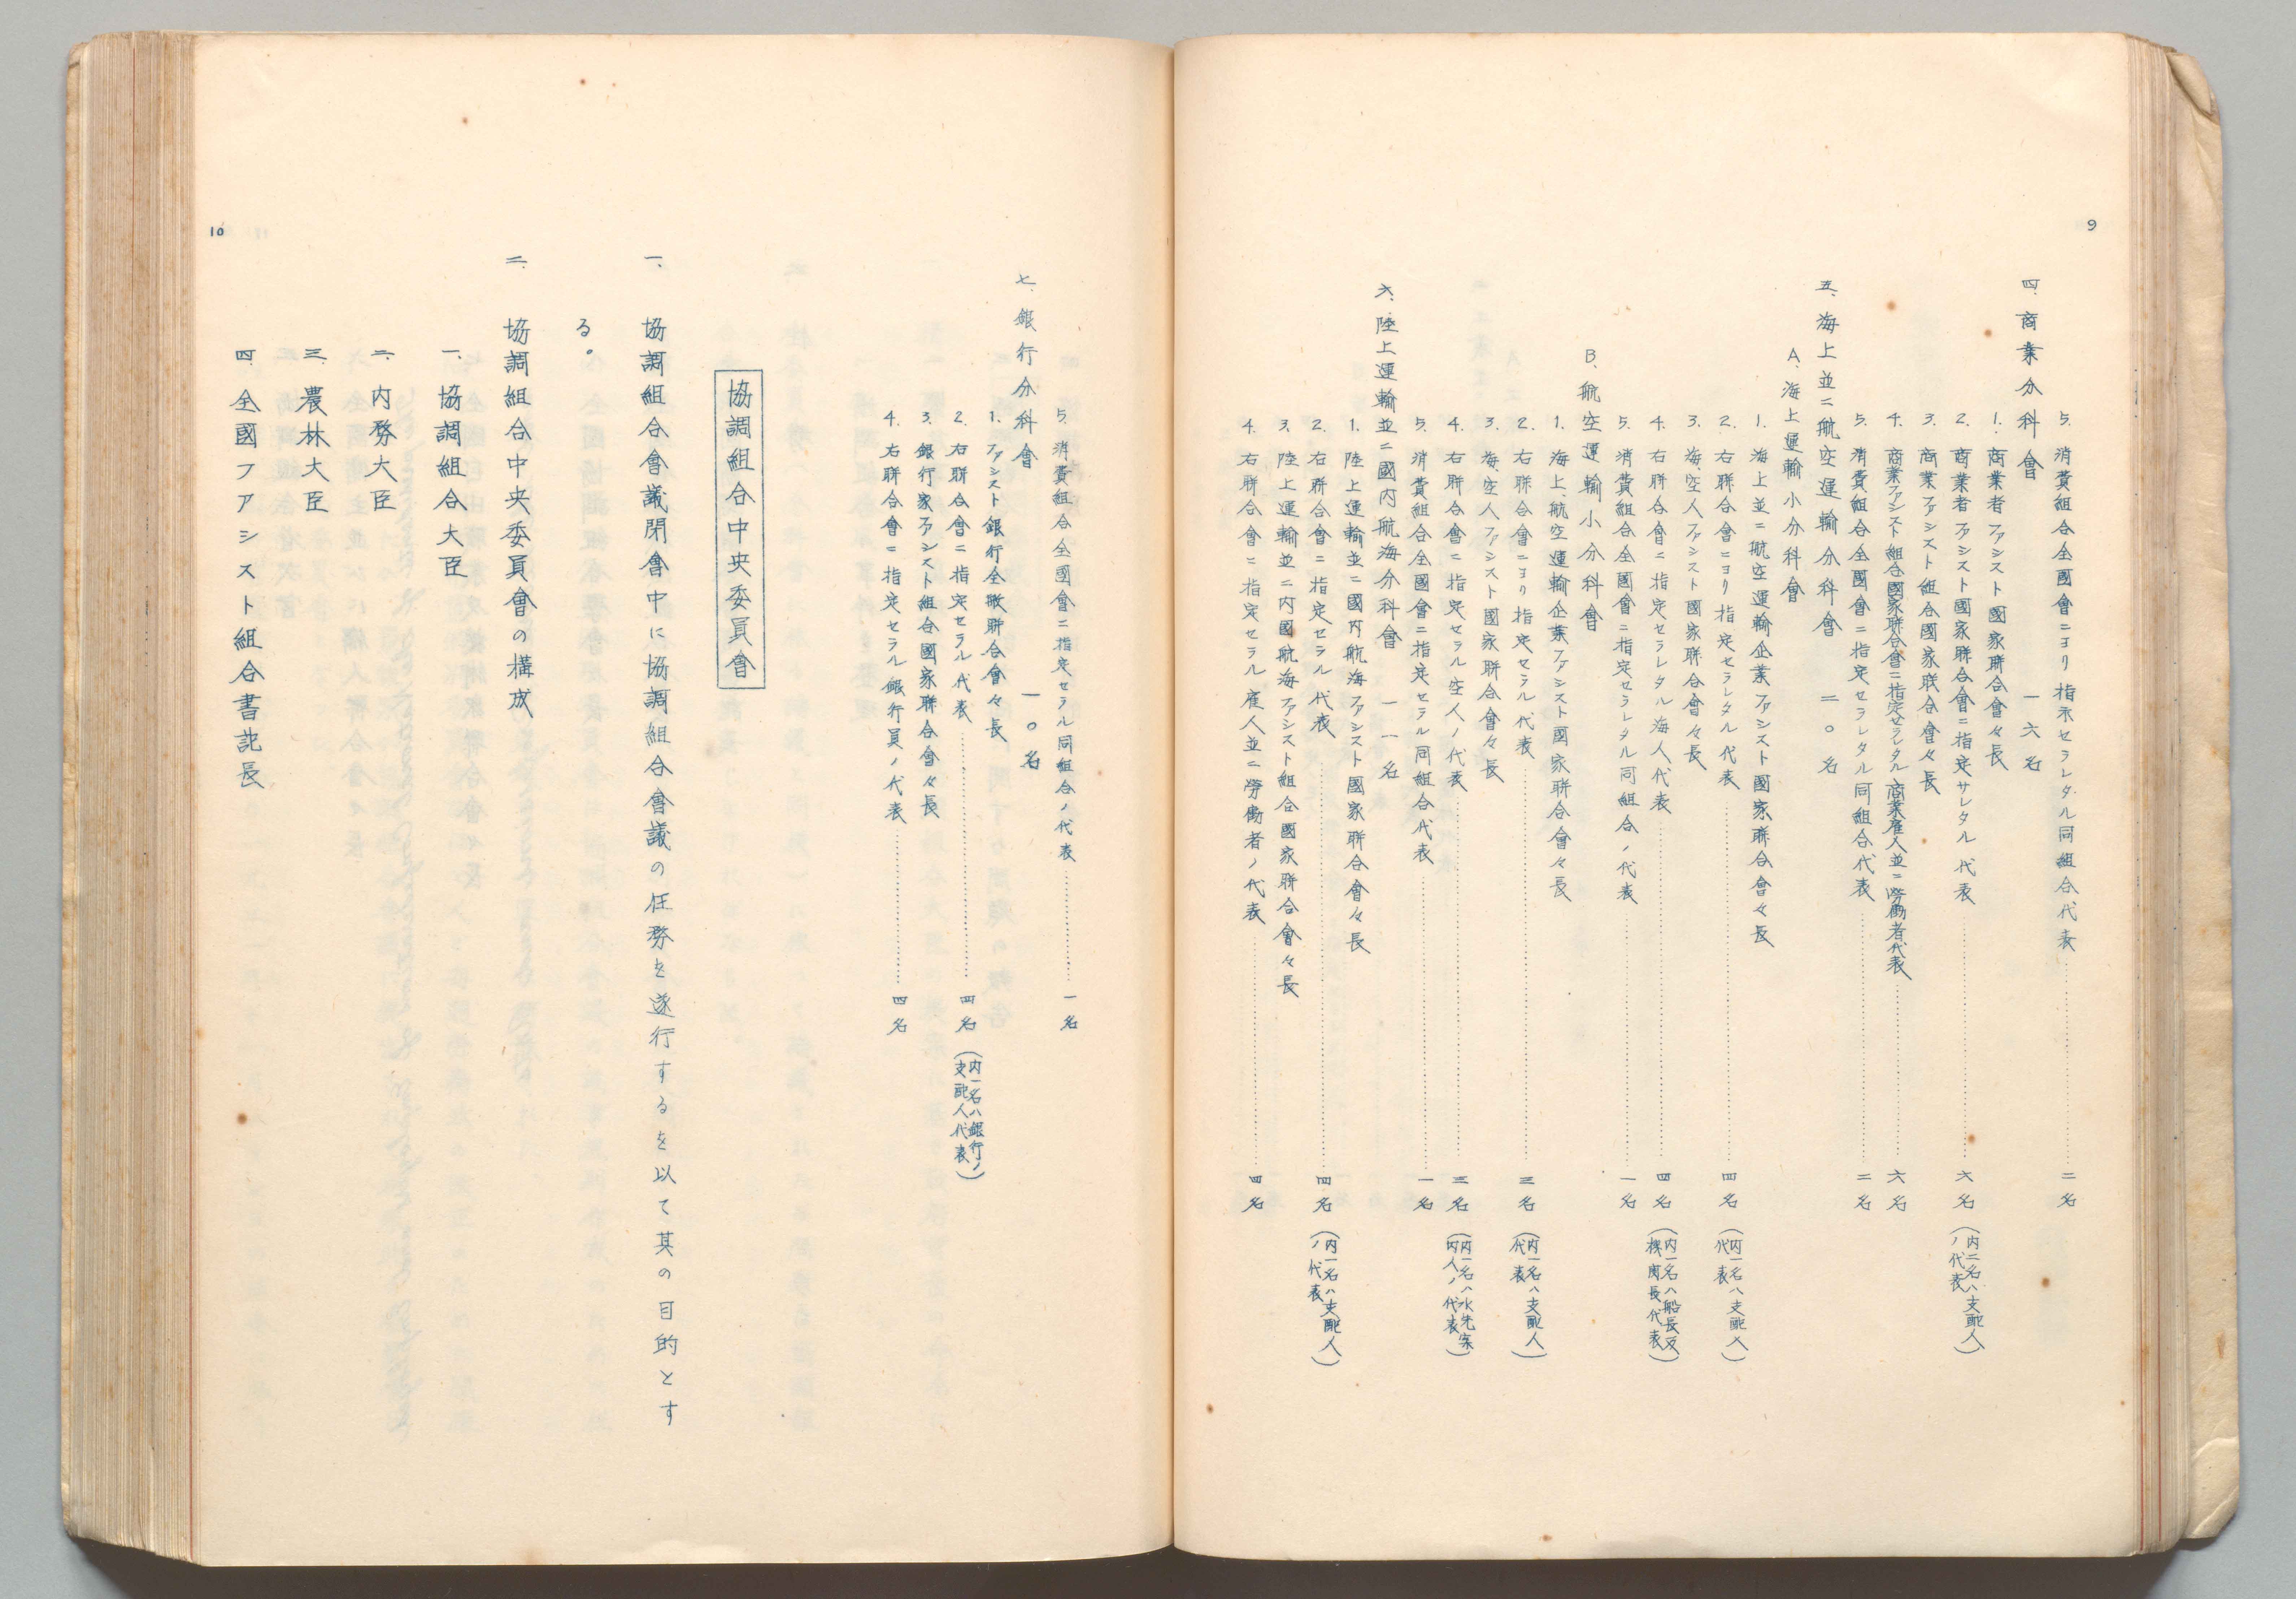 9
5. 消費組合全國會ニヨリ指示セラレタル同組合代表……二名
四. 商業分科會 一六名
1. 商業者ファシスト國家聯合會々長
2. 商業者ファシスト國家聯合會ニ指定サレタル代表……六名（内二名ハ支配人ノ代表）
3. 商業ファシスト組合國家聯合會々長
4. 商業ファシスト組合國家聯合會ニ指定セラレタル商業雇人並ニ勞働者代表……六名
5. 消費組合全國會ニ指定セラレタル同組合代表……二名
五. 海上並ニ航空運輸分科會 二〇名
A. 海上運輸小分科會
1. 海上並ニ航空運輸企業ファシスト國家聯合會々長
2. 右聯合會ニヨリ指定セラレタル代表……四名（内一名ハ支配人代表）
3. 海、空人ファシスト國家聯合會々長
4. 右聯合會ニ指定セラレタル海人代表……四名（内一名ハ船長及機関長代表）
5. 消費組合全國會ニ指定セラレタル同組合ノ代表……一名
B. 航空運輸小分科會
1. 海上、航空運輸企業ファシスト國家聯合會々長
2. 右聯合會ニヨリ指定セラル代表……三名（内一名ハ支配人代表）
3. 海、空人ファシスト國家聯合會々長
4. 右聯合會ニ指定セラル空人ノ代表……三名（内一名ハ水先案内人ノ代表）
5. 消費組合全國會ニ指定セラル同組合代表……一名
六. 陸上運輸並ニ國内航海分科會 一一名
1. 陸上運輸並ニ國内航海ファシスト國家聯合會々長
2. 右聯合會ニ指定セラル代表……四名（内一名ハ支配人ノ代表）
3. 陸上運輸並ニ内國航海ファシスト組合國家聯合會々長
4. 右聯合會ニ指定セラル雇人並ニ勞働者ノ代表……四名
5. 消費組合全國會ニ指定セラル同組合ノ代表……一名
七. 銀行分科會 一〇名
1. ファシスト銀行全般聯合會々長
2. 右聯合會ニ指定セラル代表……四名（内一名ハ銀行ノ支配人代表）
3. 銀行家ファシスト組合國家聯合會々長
4. 右聯合會ニ指定セラル銀行員ノ代表……四名
協調組合中央委員會
一、協調組合會議閉會中に協調組合會議の任務を遂行するを以て其の目的とす
る。
二、協調組合中央委員會の構成
一、協調組合大臣
二、内務大臣
三、農林大臣
四、全國ファシスト組合書記長
10